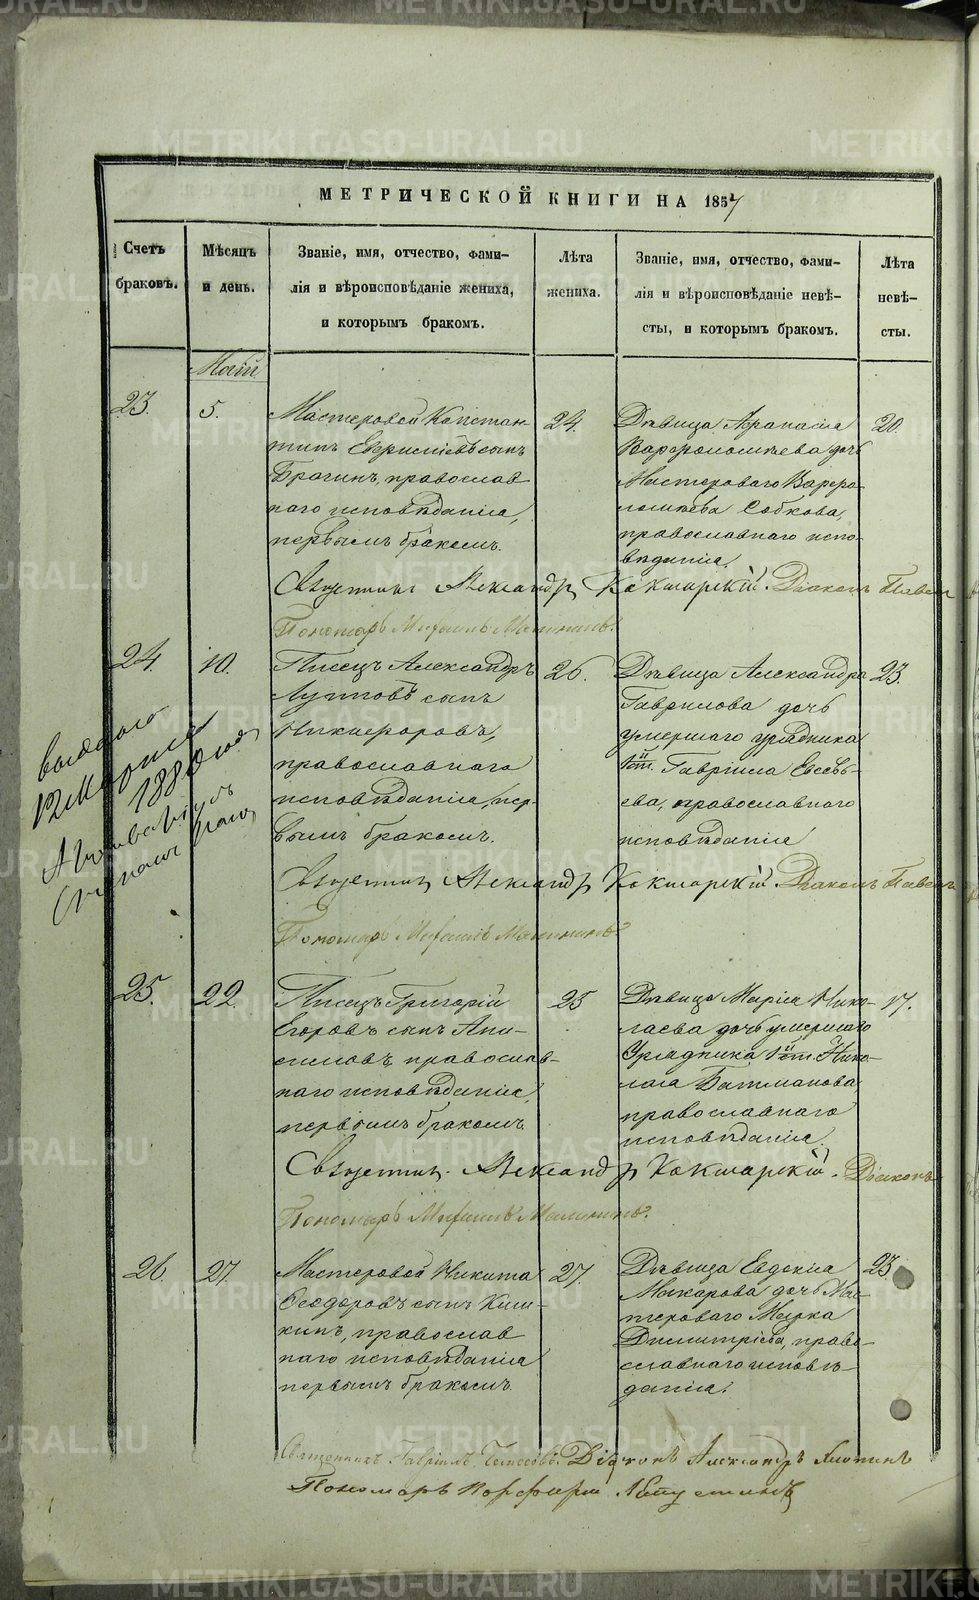 МЕТРИЧЕСКОЙ КНИГИ НА 1857
Счетъ
браковъ.
Мѣсяцъ
и день.
Званіе, имя, отчество, фами-
лія и вѣроисповѣданіе жениха,
и которымъ бракомъ.
Лѣта
жениха.
Званіе, имя, отчество, фами-
лія и вѣроисповѣданіе невѣ-
сты, и которымъ бракомъ.
Лѣта
невѣ-
сты.
Май
23.
5.
Мастеровой Констан-
тинъ сынъ
Брагинъ, православ
наго исповѣданія,
первымъ бракомъ.
24.
Дѣвица Афанасія
Варфоломѣева дочь
Мастероваго Варфо-
ломѣева Собкова,
православнаго испо-
вѣданія.
20.
Священникъ Александръ Кокшарскій. Діаконъ Павел
Пономарь Михаилъ Малининъ.
24.
10.
Писецъ Александръ
Лупповъ сынъ
Никифоровъ,
православнаго
исповѣданія, пер-
вымъ бракомъ.
26.
Дѣвица Александра
Гаврилова дочь
умершаго урядника
Гавріила Евсевь-
ева, православнаго
исповѣданія
23.
12 Марта
1880 года
Священникъ Александръ Кокшарскій. Діаконъ Павелъ
Пономарь Михаилъ Малининъ
25.
22.
Писецъ Григорій
Егоровъ сынъ Ани-
симовъ православ-
наго исповѣданія,
первымъ бракомъ.
25
Дѣвица Марія Нико-
лаева дочь умершаго
Урядника Нико-
лая Батманова
православнаго
исповѣданія.
17.
Священникъ Александръ Кокшарскій. Діаконъ
Пономарь Михаилъ Малининъ.
26.
27.
Мастеровой Никита
Ѳеодоровъ сынъ
кинъ, православ
наго исповѣданія
первымъ бракомъ.
27.
Дѣвица Евдокія
Макарова дочь Мас-
тероваго Марка
Димитріева, право-
славнаго исповѣ-
данія.
23.
Священникъ Гавріилъ Діаконъ Александръ
Пономарь Порфирій
METRIKI.GASO-URAL.RU